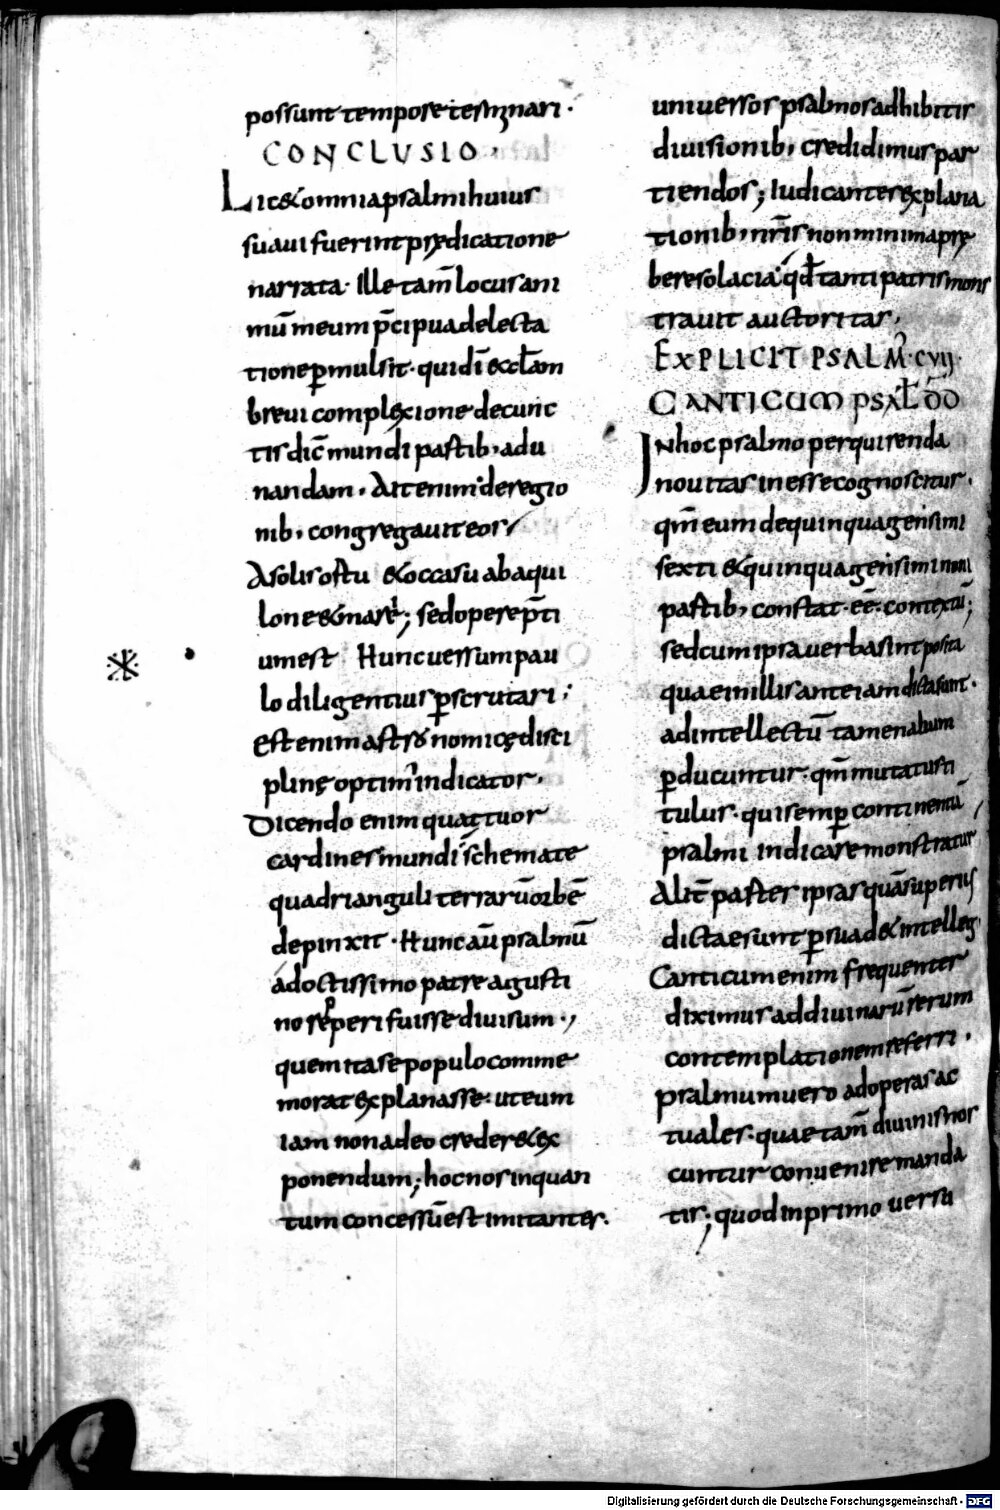 possunt tempore terminari·
CONCLUSIO·
Lic&omniapsalmihuius
suauifuerintprędicatione
narrata· Ille tam̄ locus ani
mū meum p̄cipuadelecta
tione ꝑmulsit· quidn̄i& 
breui complexione decunc
tis dic̄ mundi partib; adu
nandam· Ait enim deregio
nib; congregauit eos
Asolisortu &occasu abaqui
lone&mare; sedoperep̄ti
um est Huncuersumpau
lo diligentius ꝑscrutari;
est enim astronomicę disci
plinę optimꝰ indicator·
Dicendo enim quattuor
cardines mundi schemate
quadrianguli terrarūorbē
depinxit· Hunc aū psalmū
adoctissimo patre agusti
no rep̲peri fuisse diuisum·,
quem ita se populo comme
morat explanasse· uteum
iam non adeo creder&ex
ponendum; hoc nos inquan
tum concessūest imitantes·
uniuersos psalmos adhibitis
diuisionib; credidimus par
tiendos; Iudicantes explana
tionib; nr̄is non minima prę
bere solacia· qđ tanti patris mons
trauit auctoritas·
EXPLICIT PSALM̄·CVII·
CANTICUM PSAL̄ D̄D̄
Inhoc psalmo perquirenda
nouitas inesse cognoscitur·
qm̄ eum dequinquagensimi
sexti &quinquagensiminoni
partib; constat· ee· contextū;
sedcum ipsa uerba sint posita
quae inillis ante iam dicta sunt·
ad intellectū tamen alium
ꝑducuntur· qm̄ mutatus ti
tulus· qui semꝑ continentiā
psalmi indicare monstratur
Alit̄ paster ipsas quā superius
dictae sunt ꝑsuad&intelleg
Canticum enim frequenter
diximus addiuinarū rerum
contemplationem referri·
psalmum uero ad operas ac
tuales· quae tam̄ diuinis nos
cuntur conuenire manda
tis; quod in primo uersu
Digitalisierung gefördert durch die Deutsche Forschungsgemeinschaft · DFG